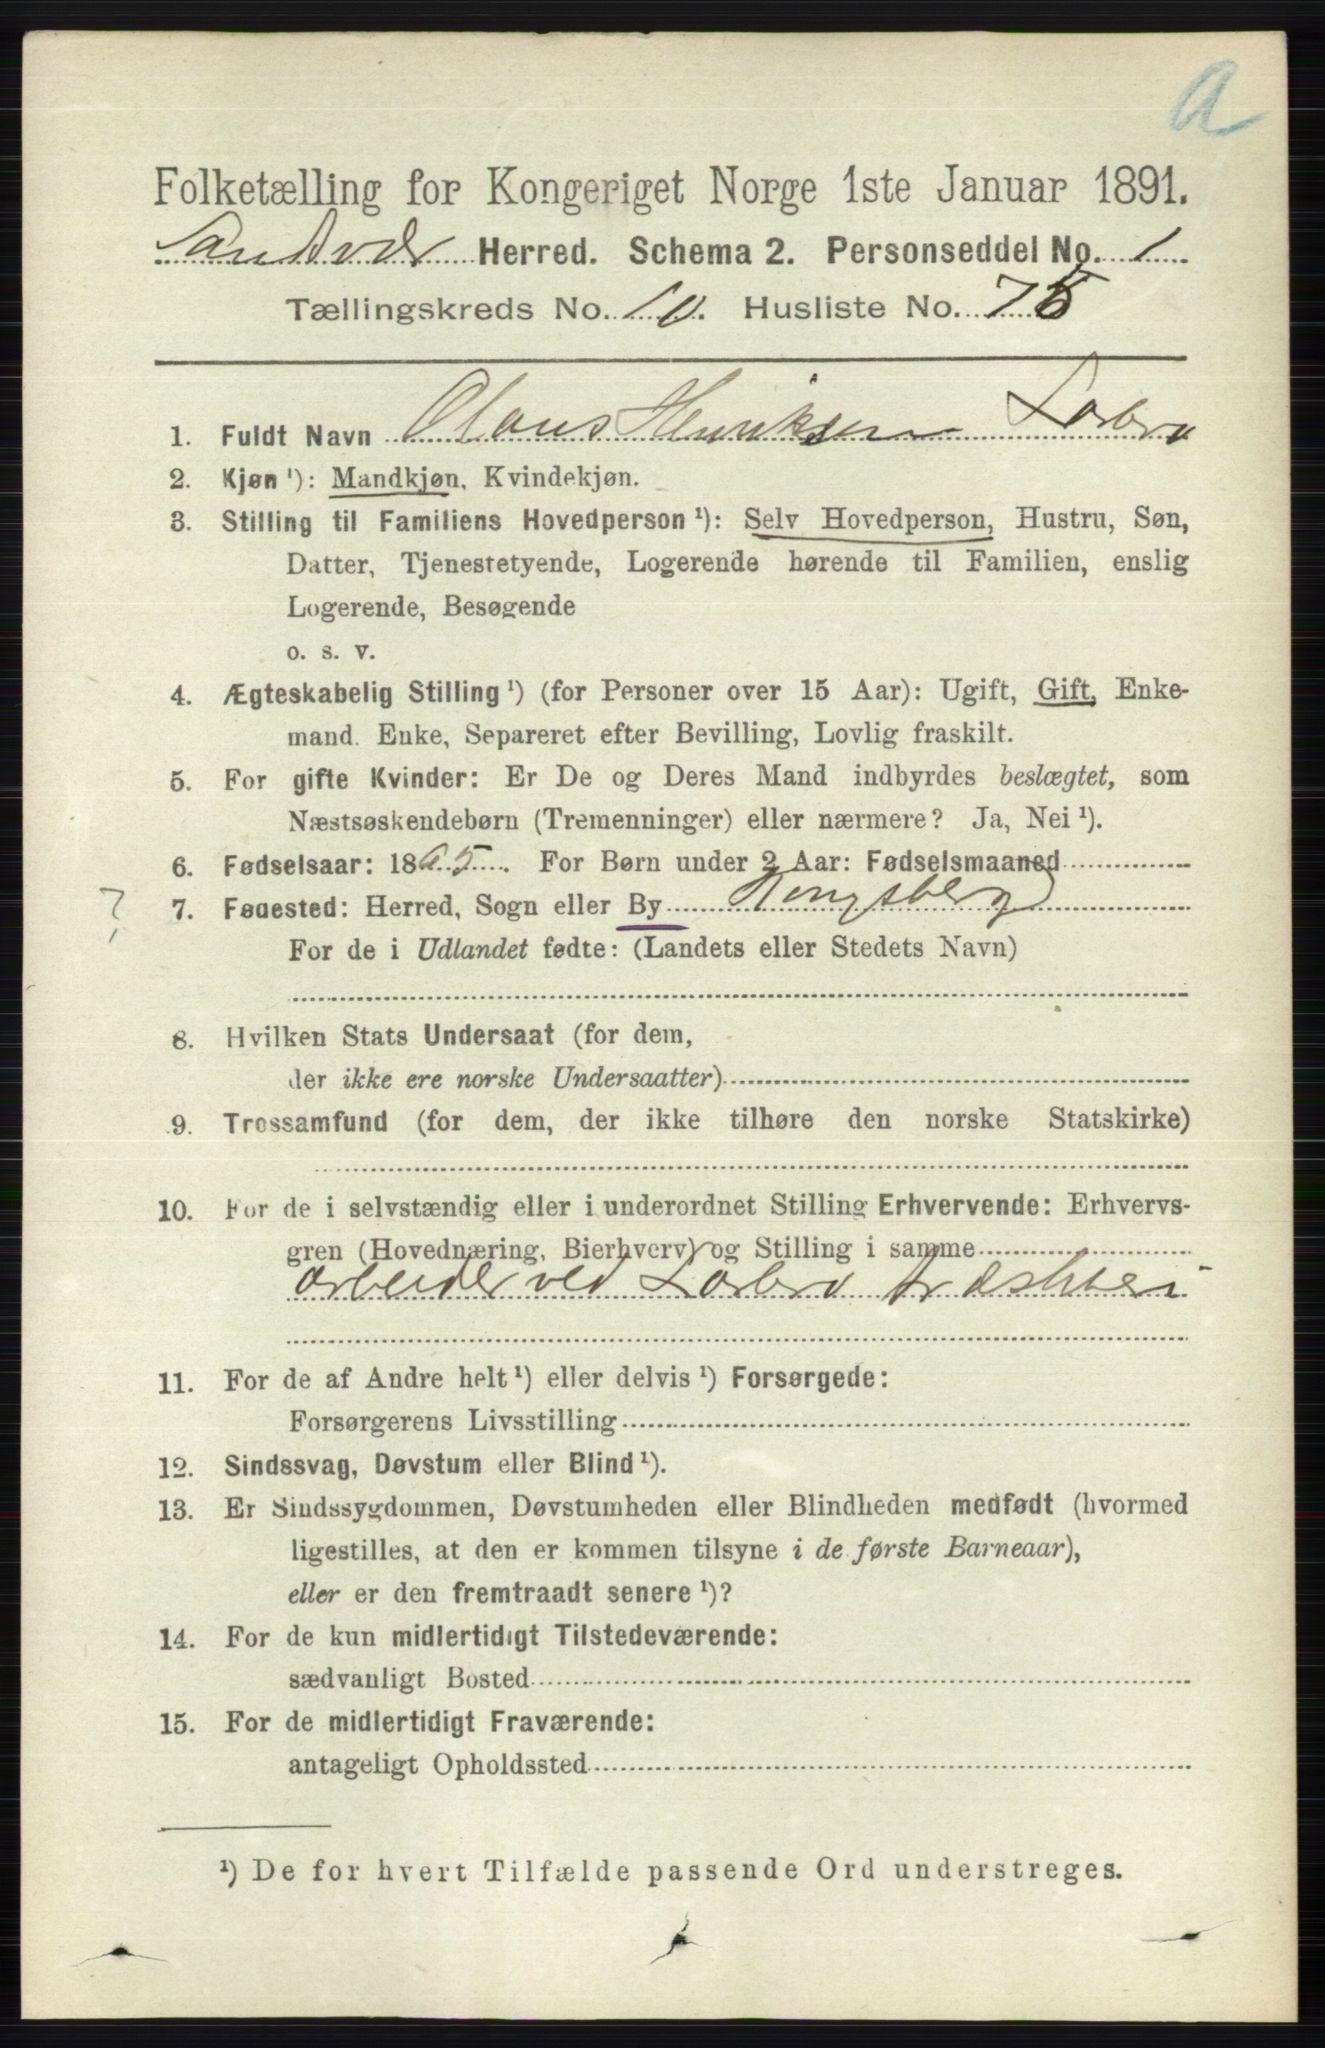 a
Folketælling for Kongeriget Norge 1ste Januar 1891.
Sandsvær Herred. Schema 2. Personseddel No. 1
Tællingskreds No. 10. Husliste No. 75
1. Fuldt Navn Olaus Henriksen Labro
2. Kjøn ¹): Mandkjøn, Kvindekjøn.
3. Stilling til Familiens Hovedperson ¹): Selv Hovedperson, Hustru, Søn,
Datter, Tjenestetyende, Logerende hørende til Familien, enslig
Logerende, Besøgende
o. s. v.
4. Ægteskabelig Stilling ¹) (for Personer over 15 Aar): Ugift, Gift, Enke-
mand, Enke, Separeret efter Bevilling, Lovlig fraskilt.
5. For gifte Kvinder: Er De og Deres Mand indbyrdes beslægtet, som
Næstsøskendebørn (Tremenninger) eller nærmere? Ja, Nei ¹).
6. Fødselsaar: 1865. For Børn under 2 Aar: Fødselsmaaned
? 7. Fødested: Herred, Sogn eller By Kongsberg
For de i Udlandet fødte: (Landets eller Stedets Navn)
8. Hvilken Stats Undersaat (for dem,
der ikke ere norske Undersaatter)
9. Trossamfund (for dem, der ikke tilhøre den norske Statskirke)
10. For de i selvstændig eller i underordnet Stilling Erhvervende: Erhvervs-
gren (Hovednæring, Bierhverv) og Stilling i samme
arbeider ved Labro Træsliberi
11. For de af Andre helt ¹) eller delvis ¹) Forsørgede:
Forsørgerens Livsstilling
12. Sindssvag, Døvstum eller Blind ¹).
13. Er Sindssygdommen, Døvstumheden eller Blindheden medfødt (hvormed
ligestilles, at den er kommen tilsyne i de første Barneaar),
eller er den fremtraadt senere ¹)?
14. For de kun midlertidigt Tilstedeværende:
sædvanligt Bosted
15. For de midlertidigt Fraværende:
antageligt Opholdssted
¹) De for hvert Tilfælde passende Ord understreges.